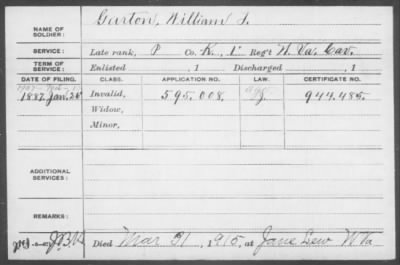 NAME OF SOLDIER: Garton, William S.
SERVICE: Late rank, P Co. K, 1 Reg't W. Va. Cav.
TERM OF SERVICE: Enlisted , 1 Discharged , 1
DATE OF FILING. CLASS. APPLICATION NO. LAW. CERTIFICATE NO.
1887 Jan. 25 Invalid, 595.008. 944.485.
Widow,
Minor,
ADDITIONAL SERVICES:
REMARKS:
Died Mar 31, 1915, at Jane Lew W Va